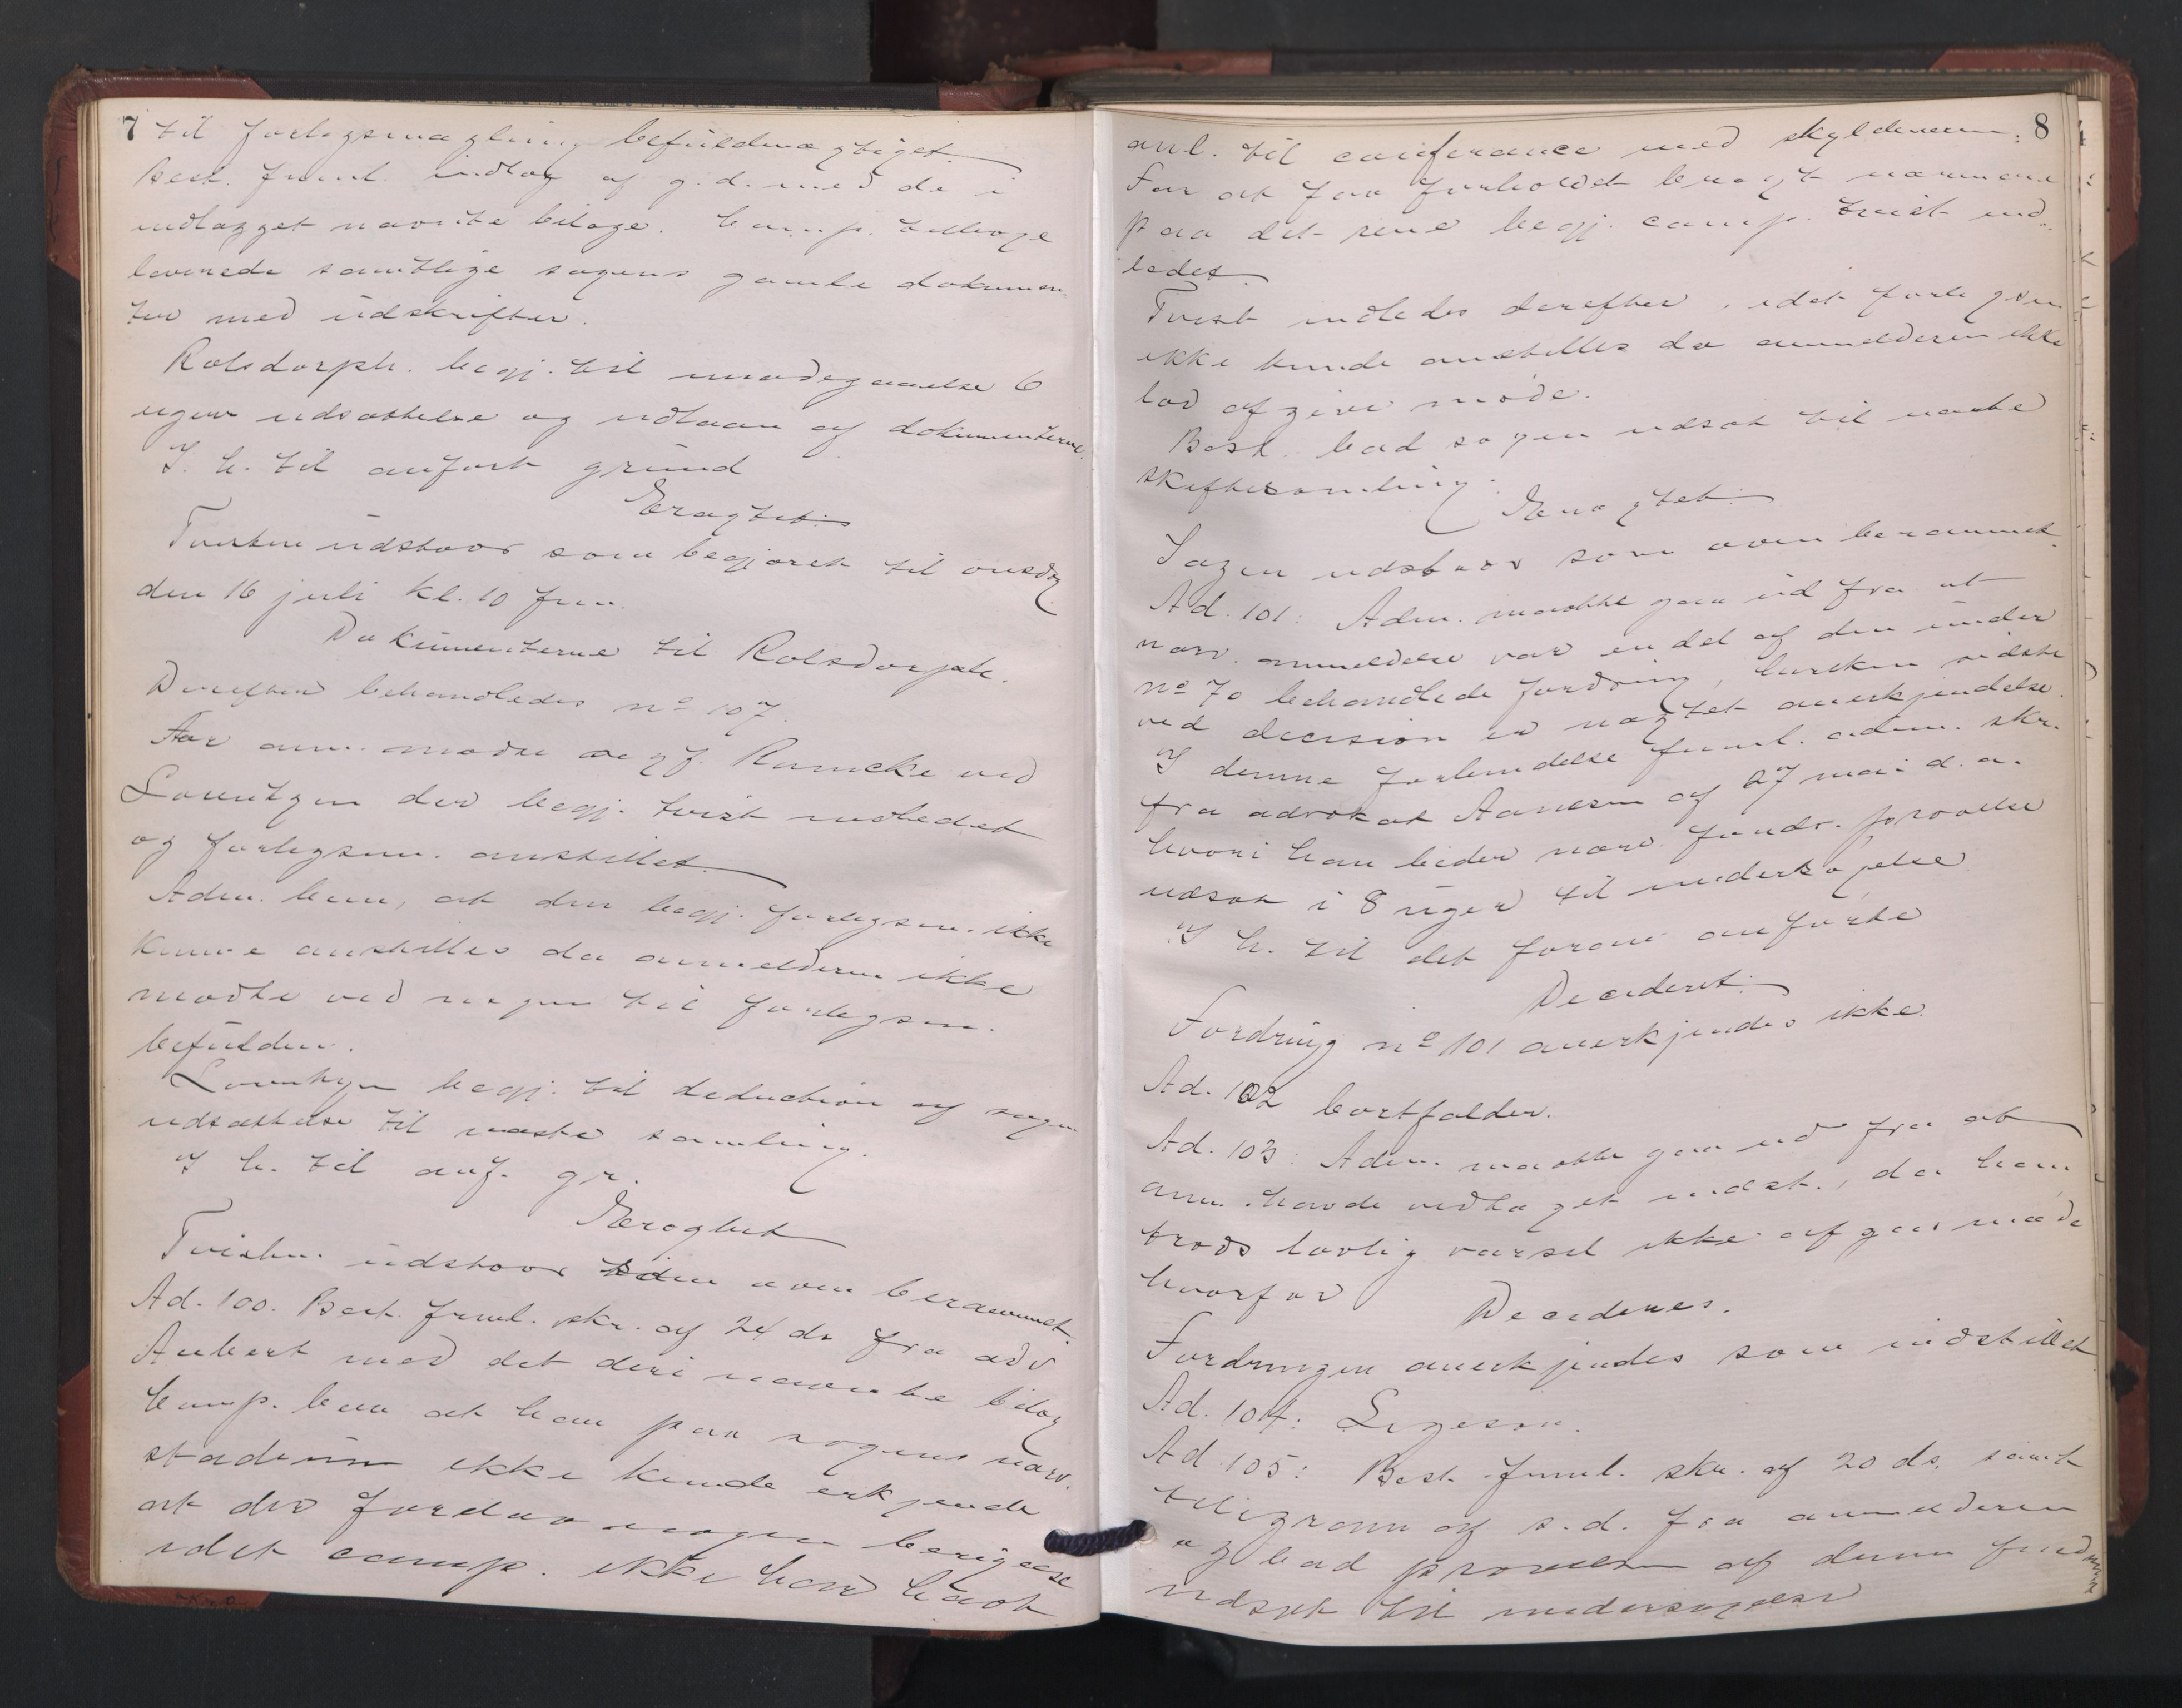 7
til forligsmægling befuldmægtiget.
Best. freml. indlæg af g. d. med de i
indlægget nævnte bilage. Comp. tillige
leverede samtlige sagens gamle dokumen-
ter med udskrifter.
Rolsdorph. begj. til imødegaaelse 6
ugers udsættelse og udlaan af dokumenterne.
I. h. til anført grund
Eragtet:
Tvisten udstaar som begjæret til onsdag
den 16 juli kl. 10 fm.
Dokumenterne til Rolsdorph.
Derefter behandledes nº 107.
For anm. mødte sagf. Ramcke ved
Lorentzen der begj. tvist indledet
og forligsm. anstillet.
Adm. bem, at den begj. forligsm. ikke
kunde anstilles da anmelderen ikke
mødte ved nogen til forligsm.
befuldm.
Lorentzen begj. til deduction af sagen
udsættelse til næste samling.
I h. til anf. gr.
Eragtet
Tvisten udstaar som oven berammet.
Ad. 100. Best. freml. skr. af 24 ds fra adv
Aubert med det deri nævnte bilag
Comp. bem at han paa sagens nærv.
stadium ikke kunde erkjende
at der forelaa nogen berigelse
idet comp. ikke havde havt
8
anl. til conference med skyldneren.
For at faa forholdet bragt nærmere
paa det rene begj. comp. tvist ind-
ledet.
Tvist indledes derefter, idet forligsm
ikke kunde anstilles da anmelderen ikke
lod afgive møde.
Best. bad sagen udsat til næste
skiftesamling.
Eragtet:
Sagen udstaar som oven berammet.
Ad. 101: Adm. maatte gaa ud fra at
nærv. anmeldelse var en del af den under
nº 70 behandlede fordring, hvilken sidste
ved decision er nægtet anerkjendelse.
I denne forbindelse freml. adm. skr.
fra advokat Aanesen af 27 mai d. a.
hvori han beder nærv. fordr. prøvelse
udsat i 8 uger til undersøgelse
I h. til det foran anførte
Decideret:
Fordring nº 101 anerkjendes ikke.
Ad. 102 bortfalder.
Ad. 103: Adm. maatte gaa ud fra at
anm. havde vedtaget indst., da han
trods lovlig varsel ikke afgav møde
hvorfor
Decideres.
Fordringen anerkjendes som indstillet
Ad. 104: Ligesaa.
Ad. 105: Best. freml. skr. af 20 ds. samt
telegram af s. d. fra anmelderen
og bad prøvelsen af denne fordring
udsat til undersøgelse